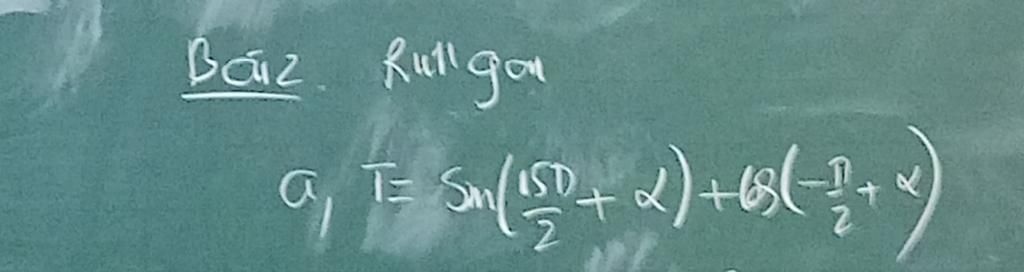 Bài 2. Rút gọn
a, T = Sin(15π/2 + α) + Cos(-π/2 + α)